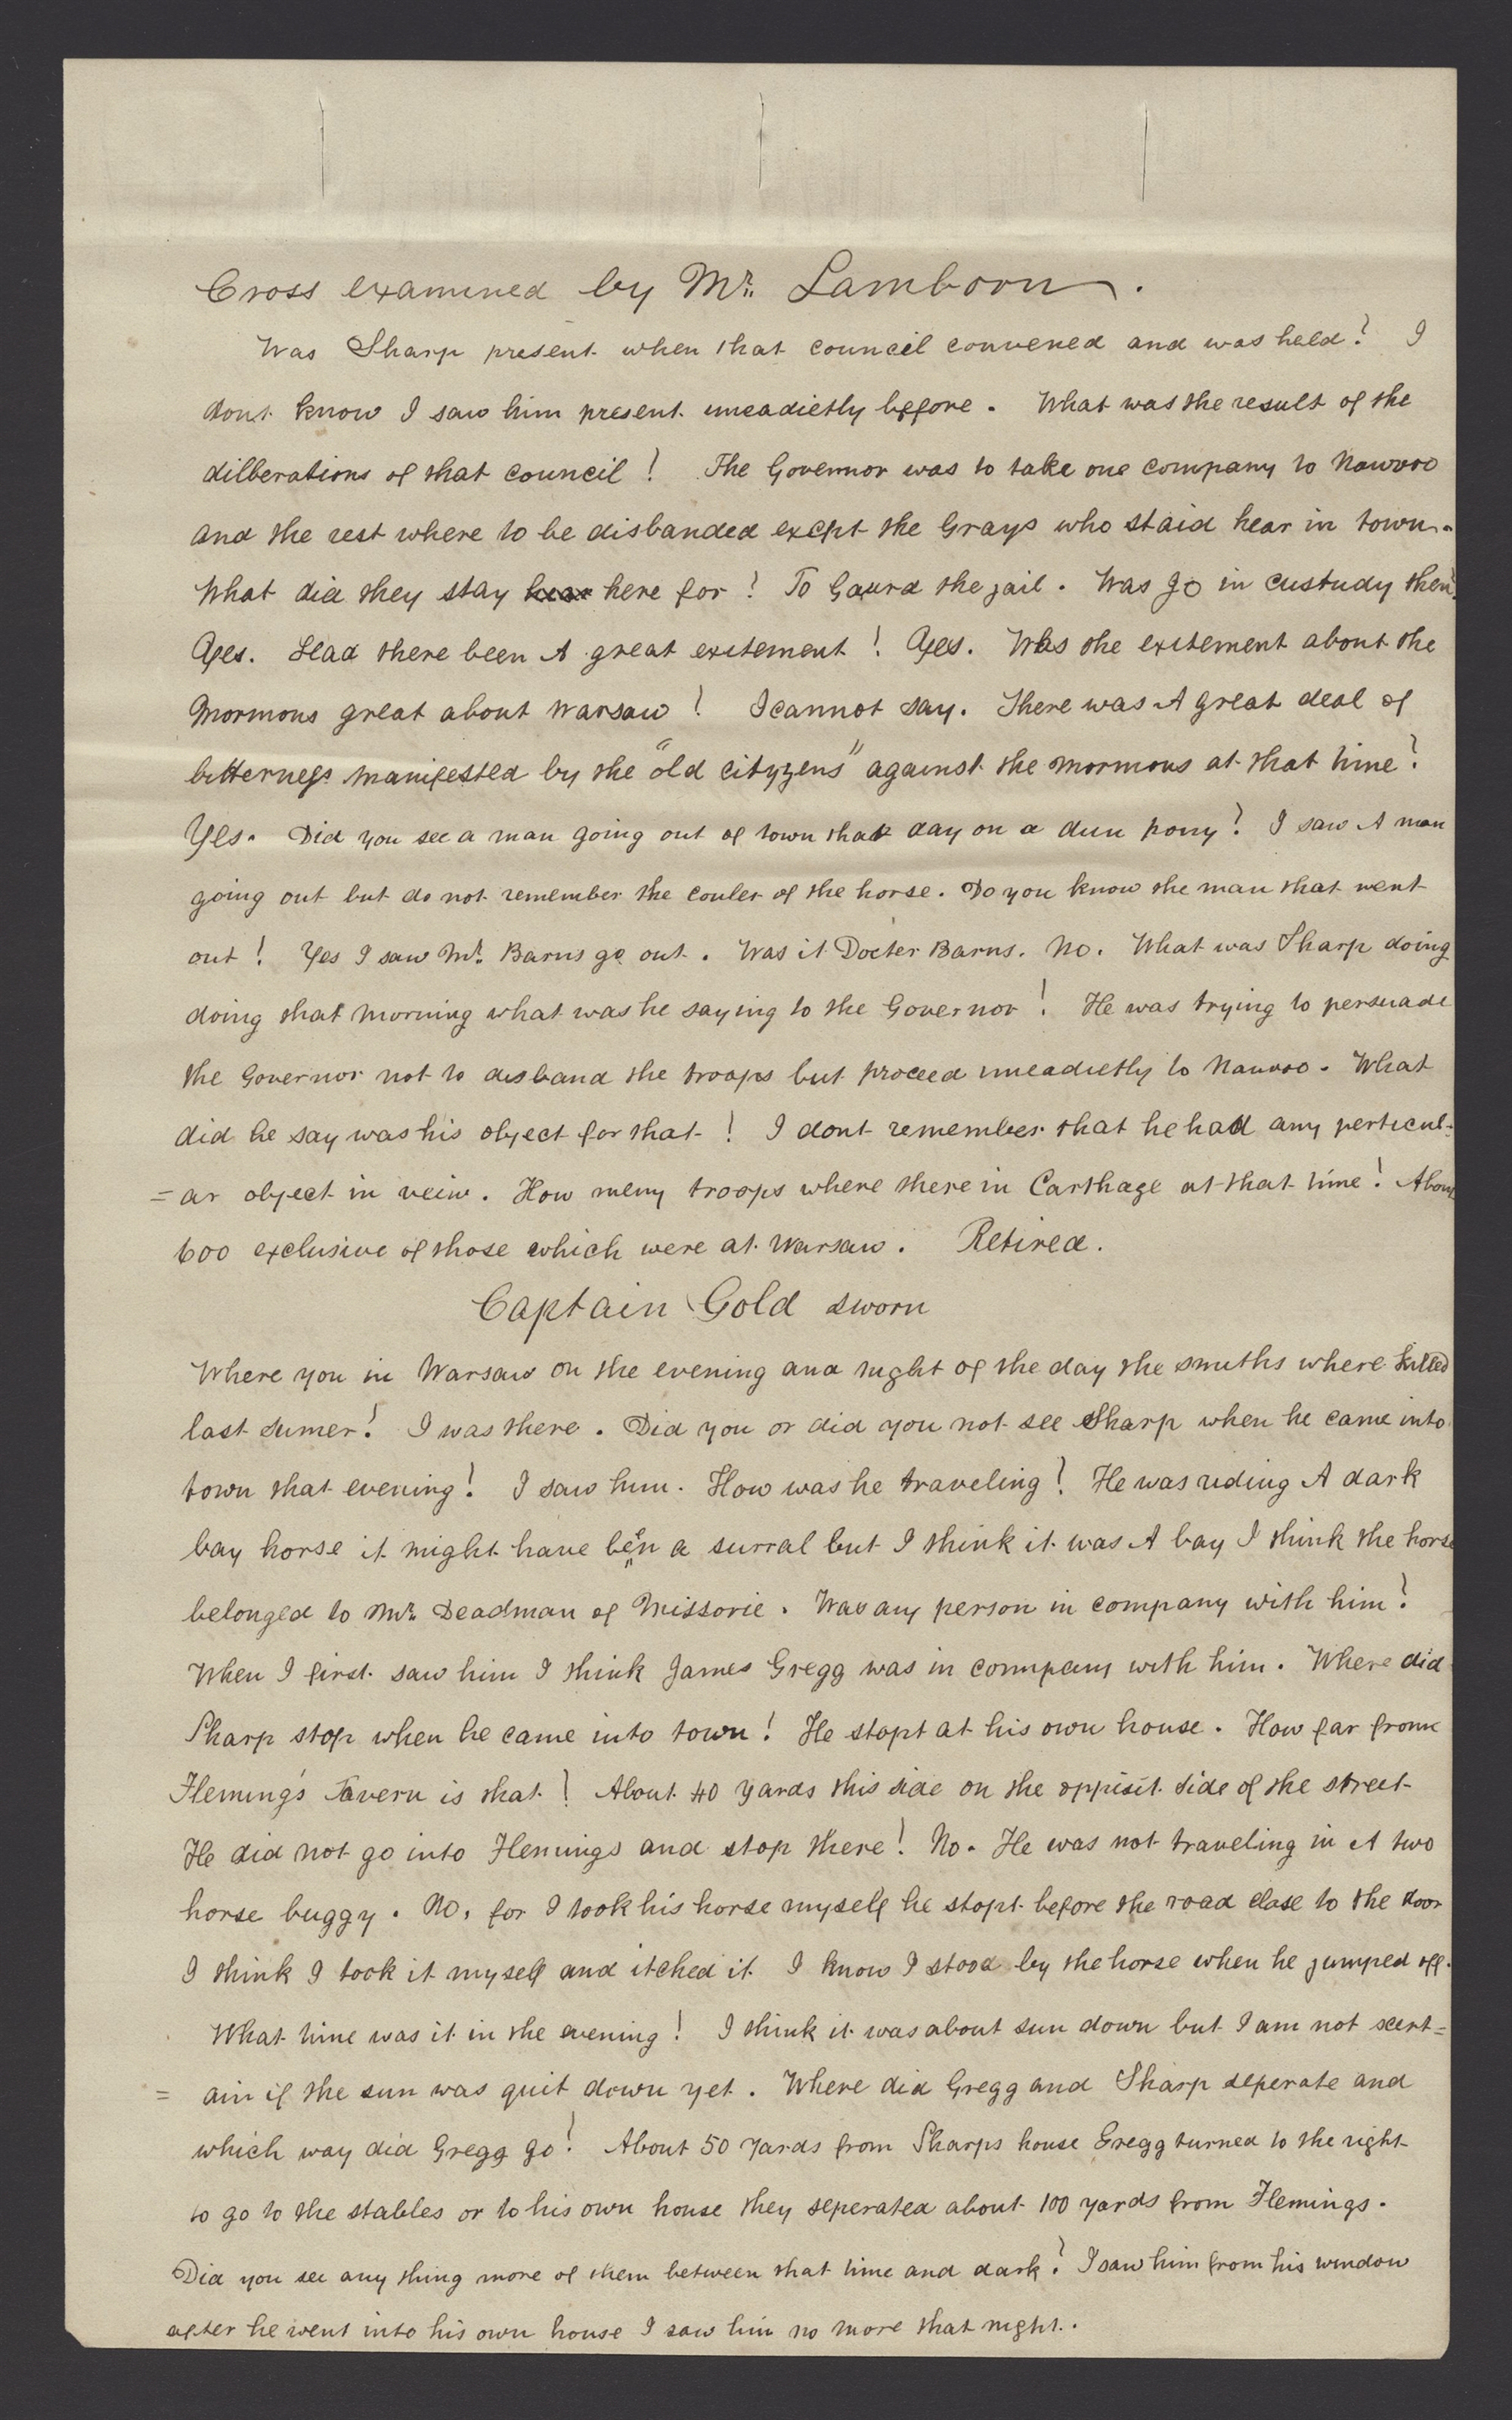 Cross examined by Mr. Lamborn.
Was Sharp present when that council convened and was held? I
dont know I saw him present imeadietly before. What was the result of the
dilberations of that council! The Governor was to take one company to Nauvoo
and the rest where to be disbanded exept the Grays who staid hear in town.
What did they stay hear here for! To Gaurd the jail. Was Jo in custudy then?
Ayes. Had there been A great exitement! Ayes. Was the exitement about the
Mormons great about Warsaw! I cannot say. There was A great deal of
bitterness manifested by the "old cityzens" against the mormons at that time?
Yes. Did you see a man going out of town that day on a dun pony? I saw A man
going out but do not remember the couler of the horse. Do you know the man that went
out! Yes I saw Mr. Barns go out. Was it Docter Barns. No. What was Sharp doing
doing that morning what was he saying to the Governor! He was trying to persuade
the Governor not to disband the troops but proceed imeadietly to Nauvoo. What
did he say was his object for that! I dont remember that he had any perticul=
=ar object in veiw. How meny troops where there in Carthage at that time! About
600 exclusive of those which were at Warsaw. Retired.
Captain Gold sworn
Where you in Warsaw on the evening and night of the day the smiths where killed
last sumer! I was there. Did you or did you not see Sharp when he came into
town that evening! I saw him. How was he traveling? He was riding A dark
bay horse it might have been a surral but I think it was A bay I think the horse
belonged to Mr. Deadman of Missorie. Was any person in company with him?
When I first saw him I think James Gregg was in company with him. Where did
Sharp stop when he came into town! He stopt at his own house. How far from
Fleming's Tavern is that! About 40 yards this side on the oppisit side of the street
He did not go into Flemings and stop there! No. He was not traveling in A two
horse buggy. No, for I took his horse myself he stopt before the road close to the door
I think I took it myself and itched it I know I stood by the horse when he jumped off.
What time was it in the evening! I think it was about sun down but I am not scert=
= ain if the sun was quit down yet. Where did Gregg and Sharp seperate and
which way did Gregg go! About 50 yards from Sharps house Gregg turned to the right
to go to the stables or to his own house they seperated about 100 yards from Flemings.
Did you see any thing more of them between that time and dark? I saw him from his window
after he went into his own house I saw him no more that night.